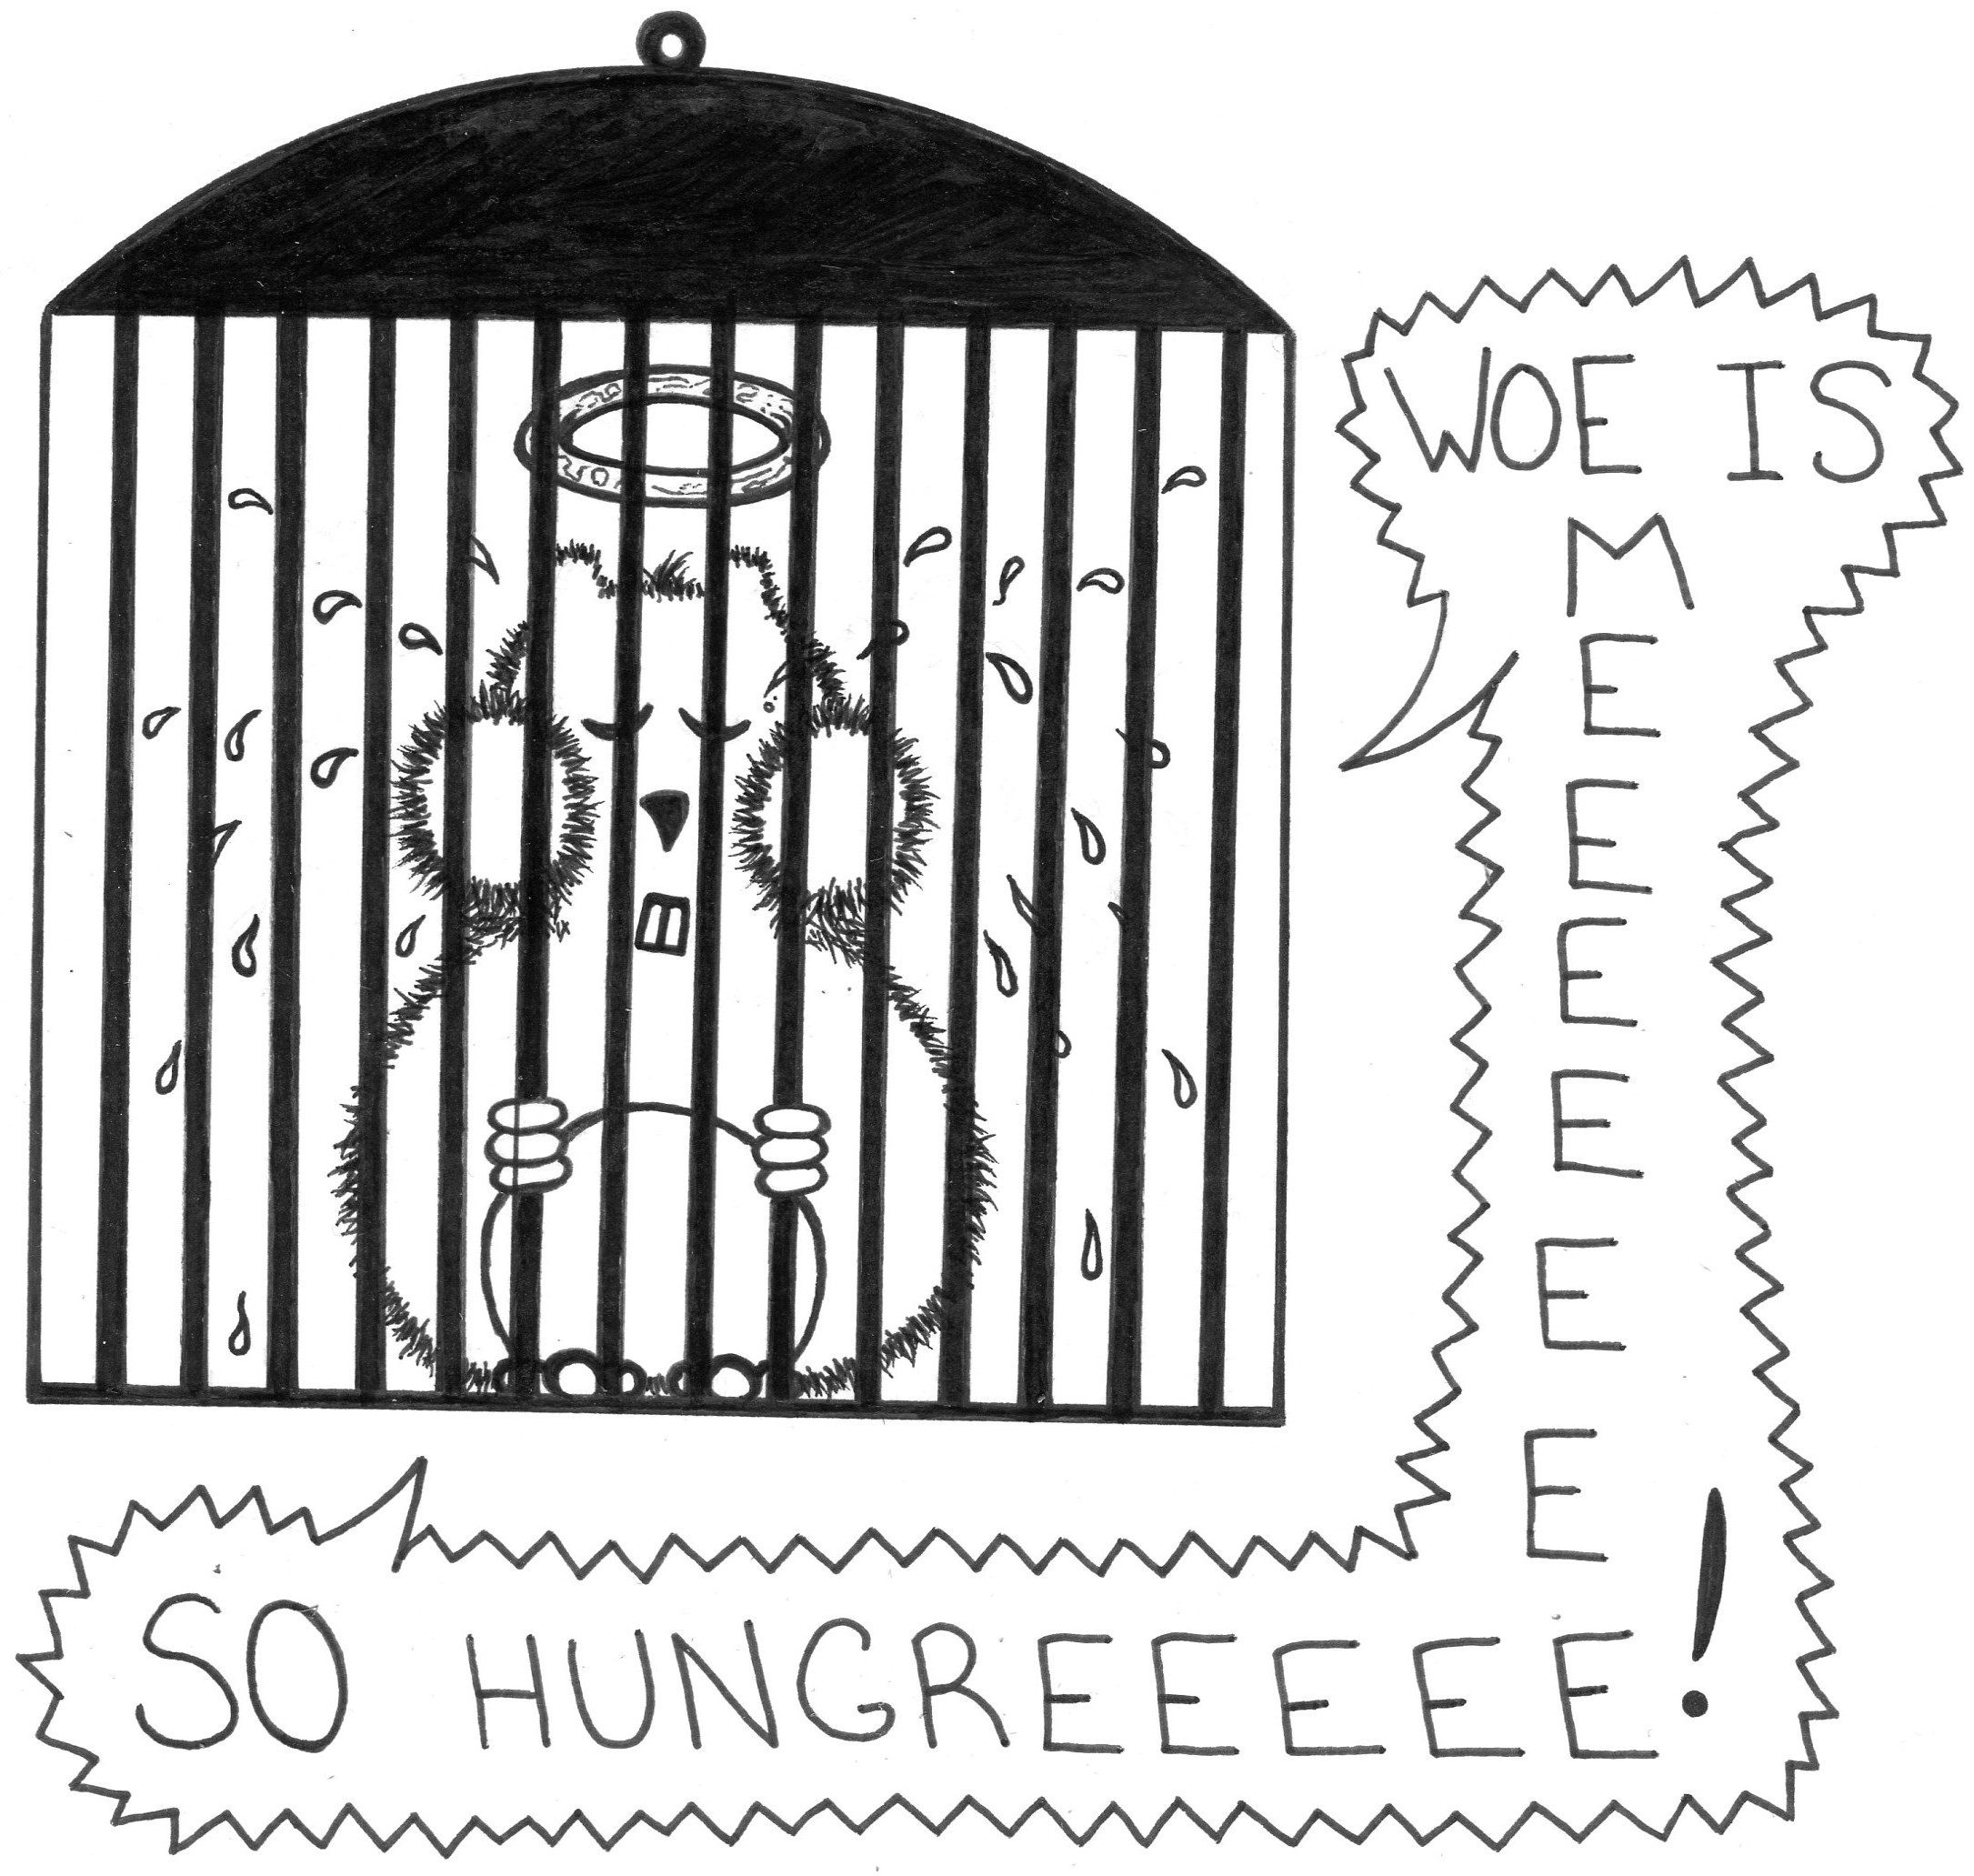 WOE IS
M
E
E
E
E
E
E
SO HUNGREEEEE!